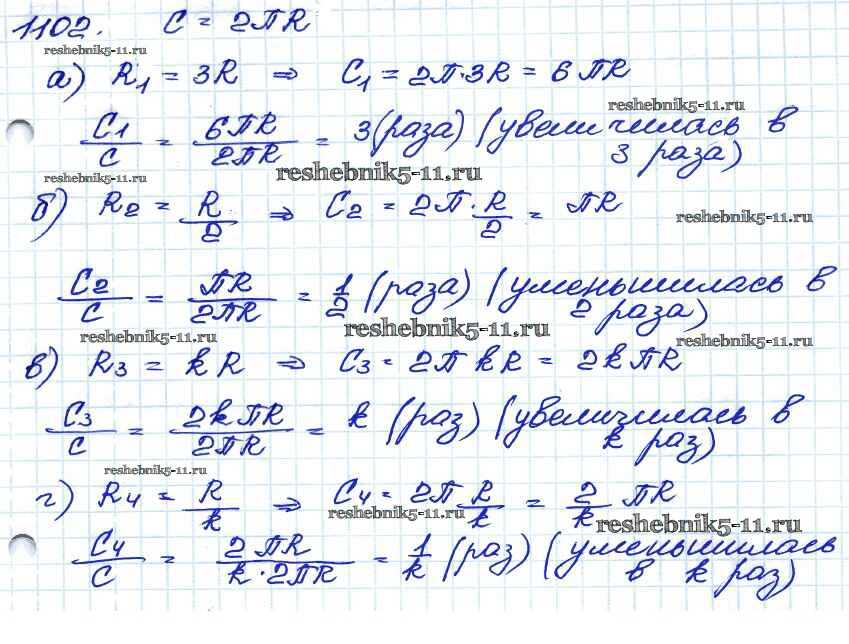 1102. C = 2πR
reshebnik5-11.ru
а) R₁ = 3R ⇒ C₁ = 2π·3R = 6πR
reshebnik5-11.ru
C₁/C = 6πR/2πR = 3 (раза) (увеличилась в
3 раза)
reshebnik5-11.ru
reshebnik5-11.ru
б) R₂ = R/2 ⇒ C₂ = 2π·R/2 = πR
reshebnik5-11.ru
C₂/C = πR/2πR = 1/2 (раза) (уменьшилась в
2 раза)
reshebnik5-11.ru
reshebnik5-11.ru
reshebnik5-11.ru
в) R₃ = kR ⇒ C₃ = 2π kR = 2kπR
C₃/C = 2kπR/2πR = k (раз) (увеличилась в
k раз)
reshebnik5-11.ru
г) R₄ = R/k ⇒ C₄ = 2π R/k = 2/k πR
reshebnik5-11.ru
reshebnik5-11.ru
C₄/C = 2πR/k·2πR = 1/k (раз) (уменьшилась
в k раз)